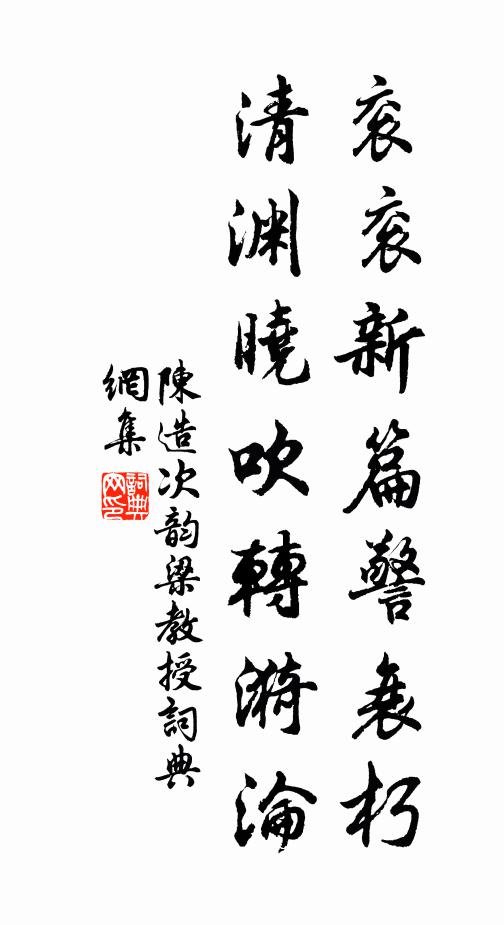 衮衮新篇警衰朽
清渊曉吹轉漪淪
陳造次韵梁教授詞典
網集
詞典網印